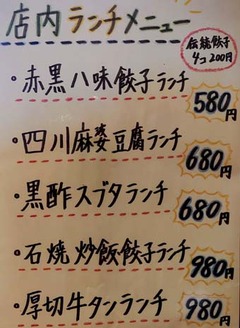 店内ランチメニュー
伝統餃子
4コ200円
・赤黒八味餃子ランチ
580円
・四川麻婆豆腐ランチ
680円
・黒酢スブタランチ
680円
・石焼炒飯餃子ランチ
980円
・厚切牛タンランチ
980円